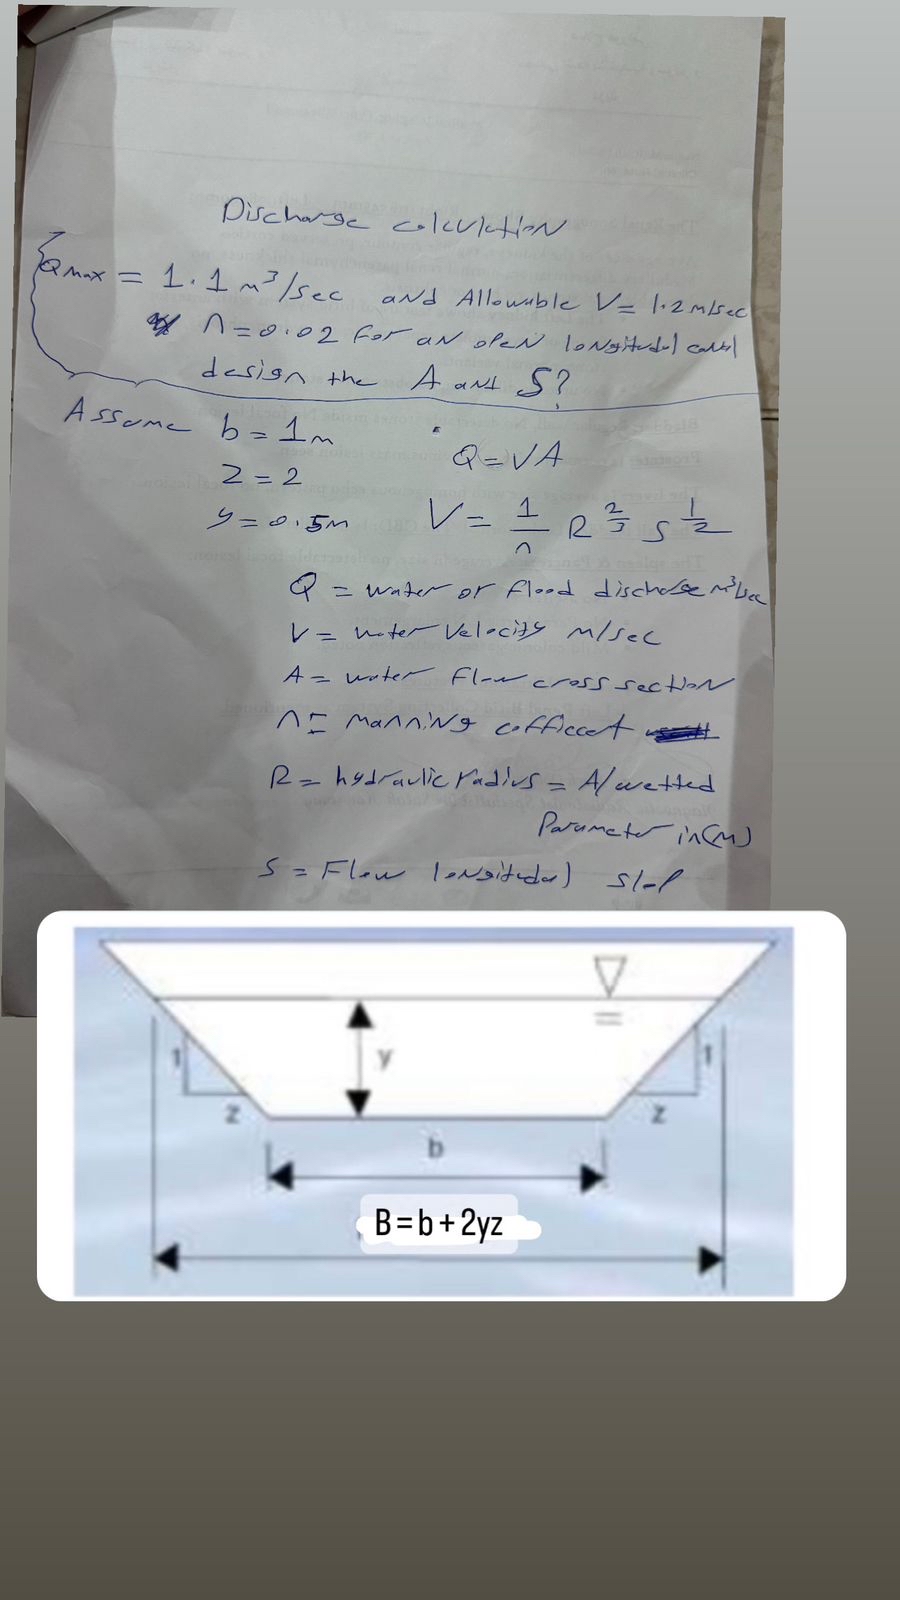 Discharge calculation
Qmax = 1.1 m³/sec and Allowable V= 1.2 m/sec
n=0.02 For an open longitudal canal
design the A and S?
Assume b = 1m
Q=VA
Z = 2
y = 0.5m
V = 1/n R 2/3 S 1/2
Q = water or flood discharge m³/sec
V = water Velocity m/sec
A = water Flow cross section
n = Manning cofficcent
R = hydraulic radius = A/wetted
Parameter in(m)
S = Flow longitudal slop
y
1
z
1
z
b
B=b+2yz